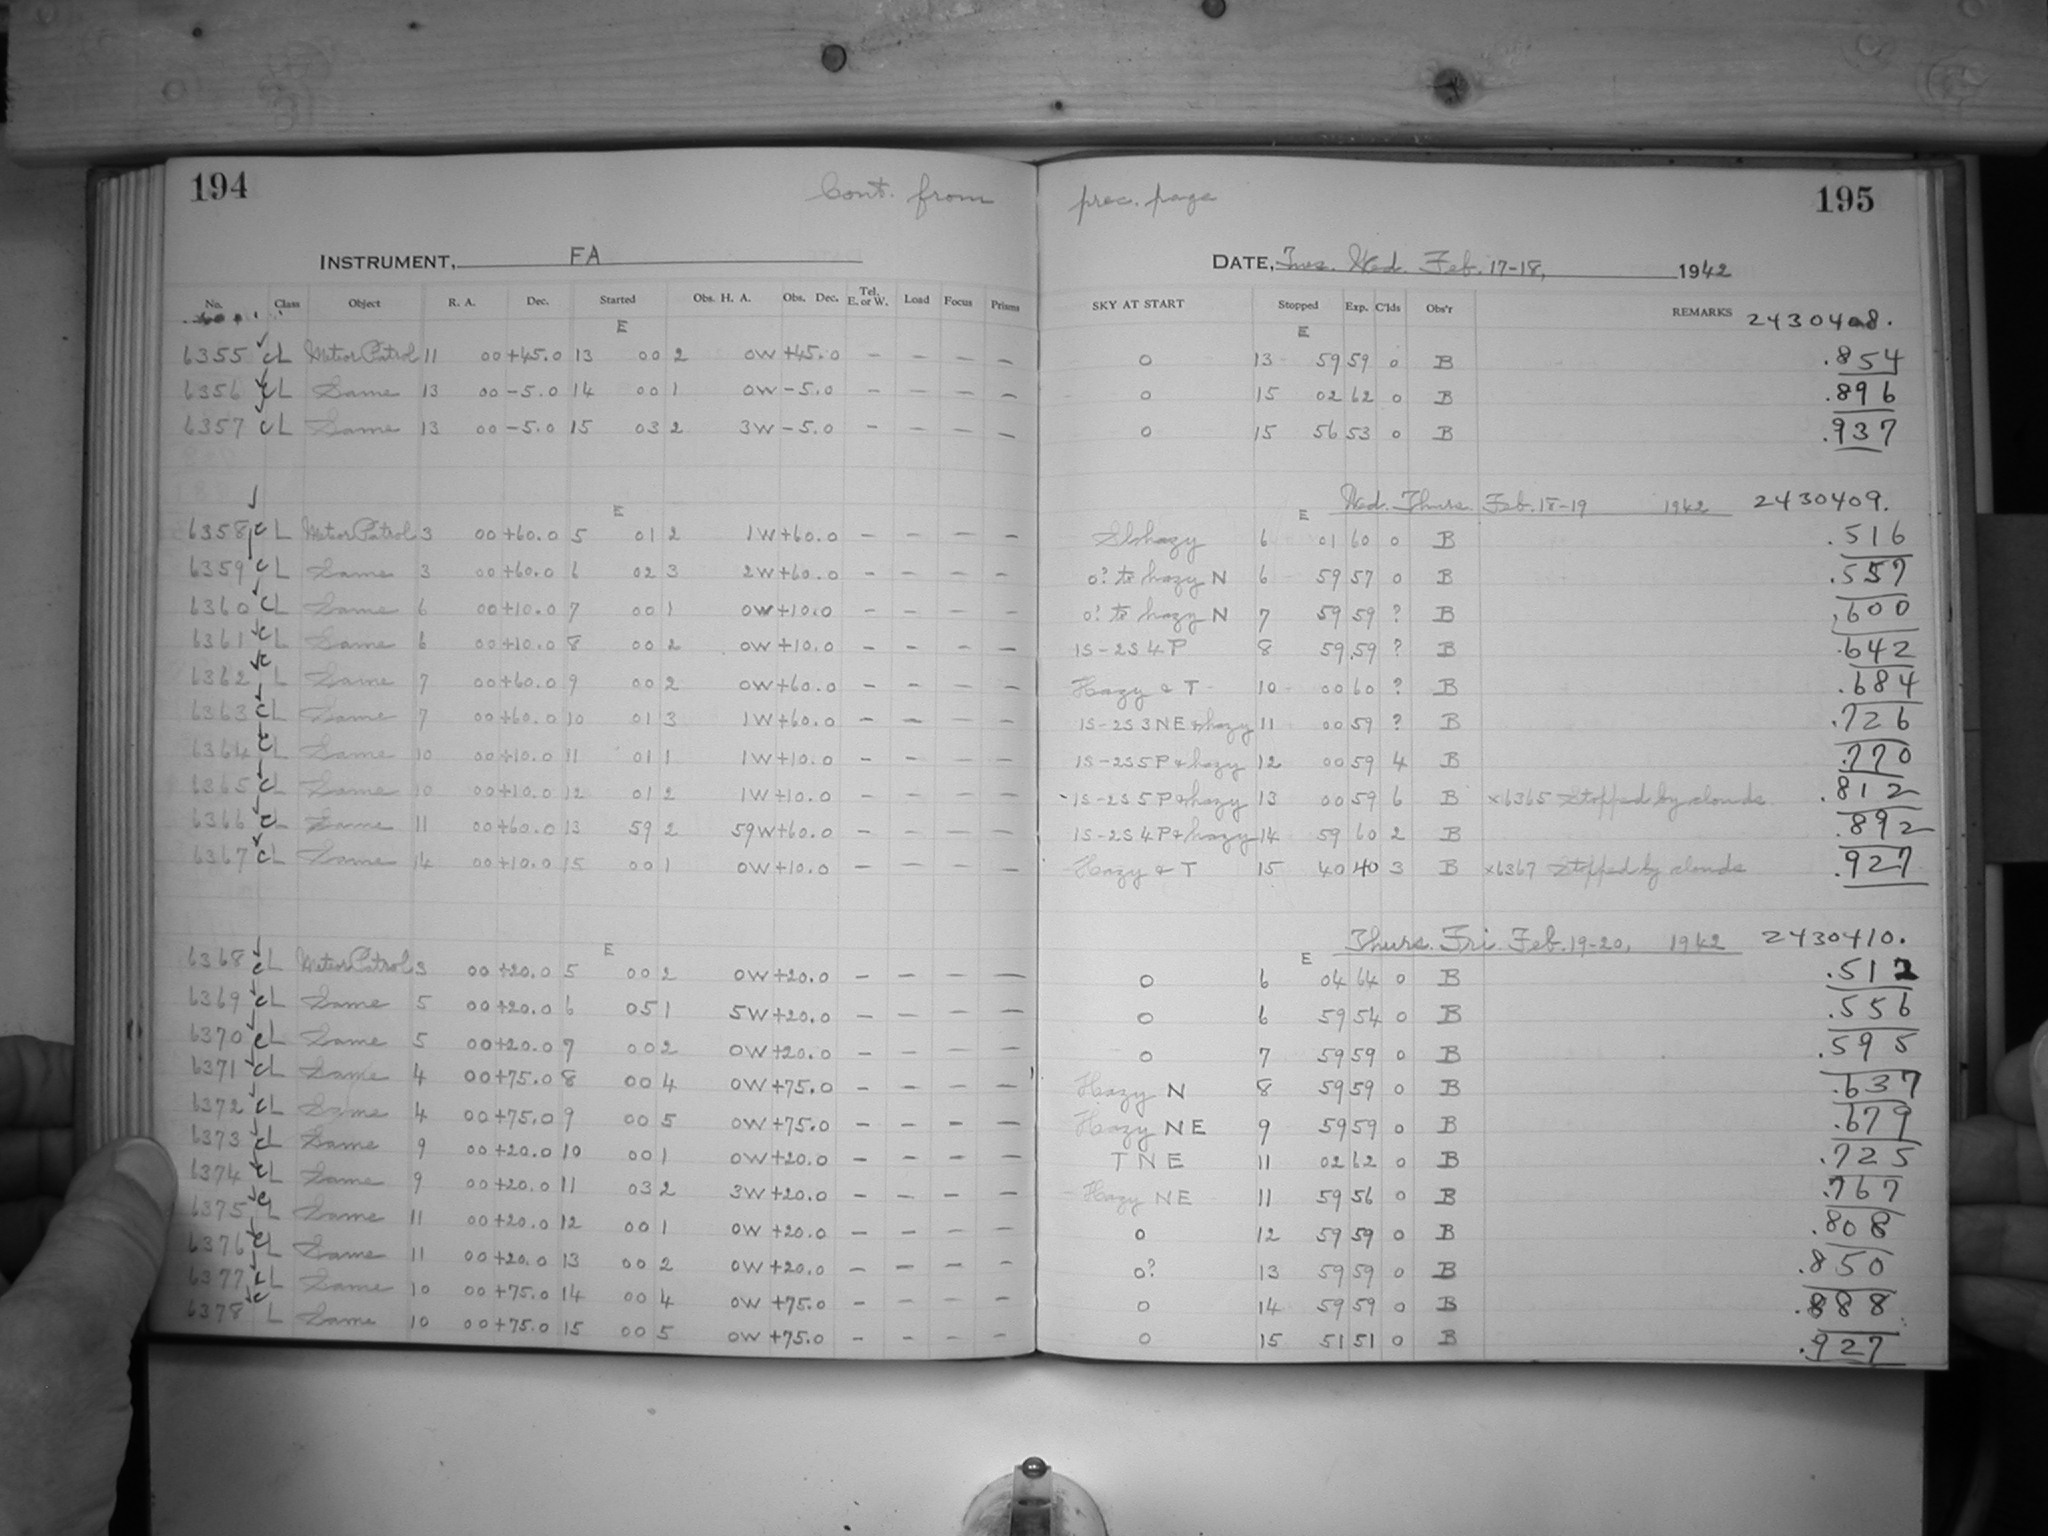 194 Cont. from prec. page 195
INSTRUMENT, FA DATE, Tues. Wed. Feb. 17-18, 1942
No. Class Object R. A. Dec. Started Obs. H. A. Obs. Dec. Tel. E. or W. Load Focus Prisms SKY AT START Stopped Exp. C'lds Obs'r REMARKS 2430408.
E E
6355 CL Meteor Patrol 11 00 +45.0 13 00 2 0W +45.0 — — — — 0 13 59 59 0 B .854
6356 CL Same 13 00 -5.0 14 00 1 0W -5.0 — — — — 0 15 02 62 0 B .896
6357 CL Same 13 00 -5.0 15 03 2 3W -5.0 — — — — 0 15 56 53 0 B .937
E E Wed. Thurs. Feb. 18-19 1942 2430409.
6358 CL Meteor Patrol 3 00 +60.0 5 01 2 1W +60.0 — — — — Sl hazy 6 01 60 0 B .516
6359 CL Same 3 00 +60.0 6 02 3 2W +60.0 — — — — 0? to hazy N 6 59 57 0 B .557
6360 CL Same 6 00 +10.0 7 00 1 0W +10.0 — — — — 0? to hazy N 7 59 59 ? B .600
6361 CL Same 6 00 +10.0 8 00 2 0W +10.0 — — — — 1S-2S4P 8 59 59 ? B .642
6362 CL Same 7 00 +60.0 9 00 2 0W +60.0 — — — — Hazy & T 10 00 60 ? B .684
6363 CL Same 7 00 +60.0 10 01 3 1W +60.0 — — — — 1S-2S3NE & hazy 11 00 59 ? B .726
6364 CL Same 10 00 +10.0 11 01 1 1W +10.0 — — — — 1S-2S5P & hazy 12 00 59 4 B .770
6365 CL Same 10 00 +10.0 12 01 2 1W +10.0 — — — — 1S-2S5P & hazy 13 00 59 6 B x6365 Stopped by clouds .812
6366 CL Same 11 00 +60.0 13 59 2 59W +60.0 — — — — 1S-2S4P & hazy 14 59 60 2 B .892
6367 CL Same 14 00 +10.0 15 00 1 0W +10.0 — — — — Hazy & T 15 40 40 3 B x6367 Stopped by clouds .927
E E Thurs. Fri. Feb. 19-20, 1942 2430410.
6368 CL Meteor Patrol 3 00 +20.0 5 00 2 0W +20.0 — — — — 0 6 04 64 0 B .512
6369 CL Same 5 00 +20.0 6 05 1 5W +20.0 — — — — 0 6 59 54 0 B .556
6370 CL Same 5 00 +20.0 7 00 2 0W +20.0 — — — — 0 7 59 59 0 B .595
6371 CL Same 4 00 +75.0 8 00 4 0W +75.0 — — — — Hazy N 8 59 59 0 B .637
6372 CL Same 4 00 +75.0 9 00 5 0W +75.0 — — — — Hazy NE 9 59 59 0 B .679
6373 CL Same 9 00 +20.0 10 00 1 0W +20.0 — — — — T NE 11 02 62 0 B .725
6374 CL Same 9 00 +20.0 11 03 2 3W +20.0 — — — — Hazy NE 11 59 56 0 B .767
6375 CL Same 11 00 +20.0 12 00 1 0W +20.0 — — — — 0 12 59 59 0 B .808
6376 CL Same 11 00 +20.0 13 00 2 0W +20.0 — — — — 0? 13 59 59 0 B .850
6377 CL Same 10 00 +75.0 14 00 4 0W +75.0 — — — — 0 14 59 59 0 B .888
6378 CL Same 10 00 +75.0 15 00 5 0W +75.0 — — — — 0 15 51 51 0 B .927